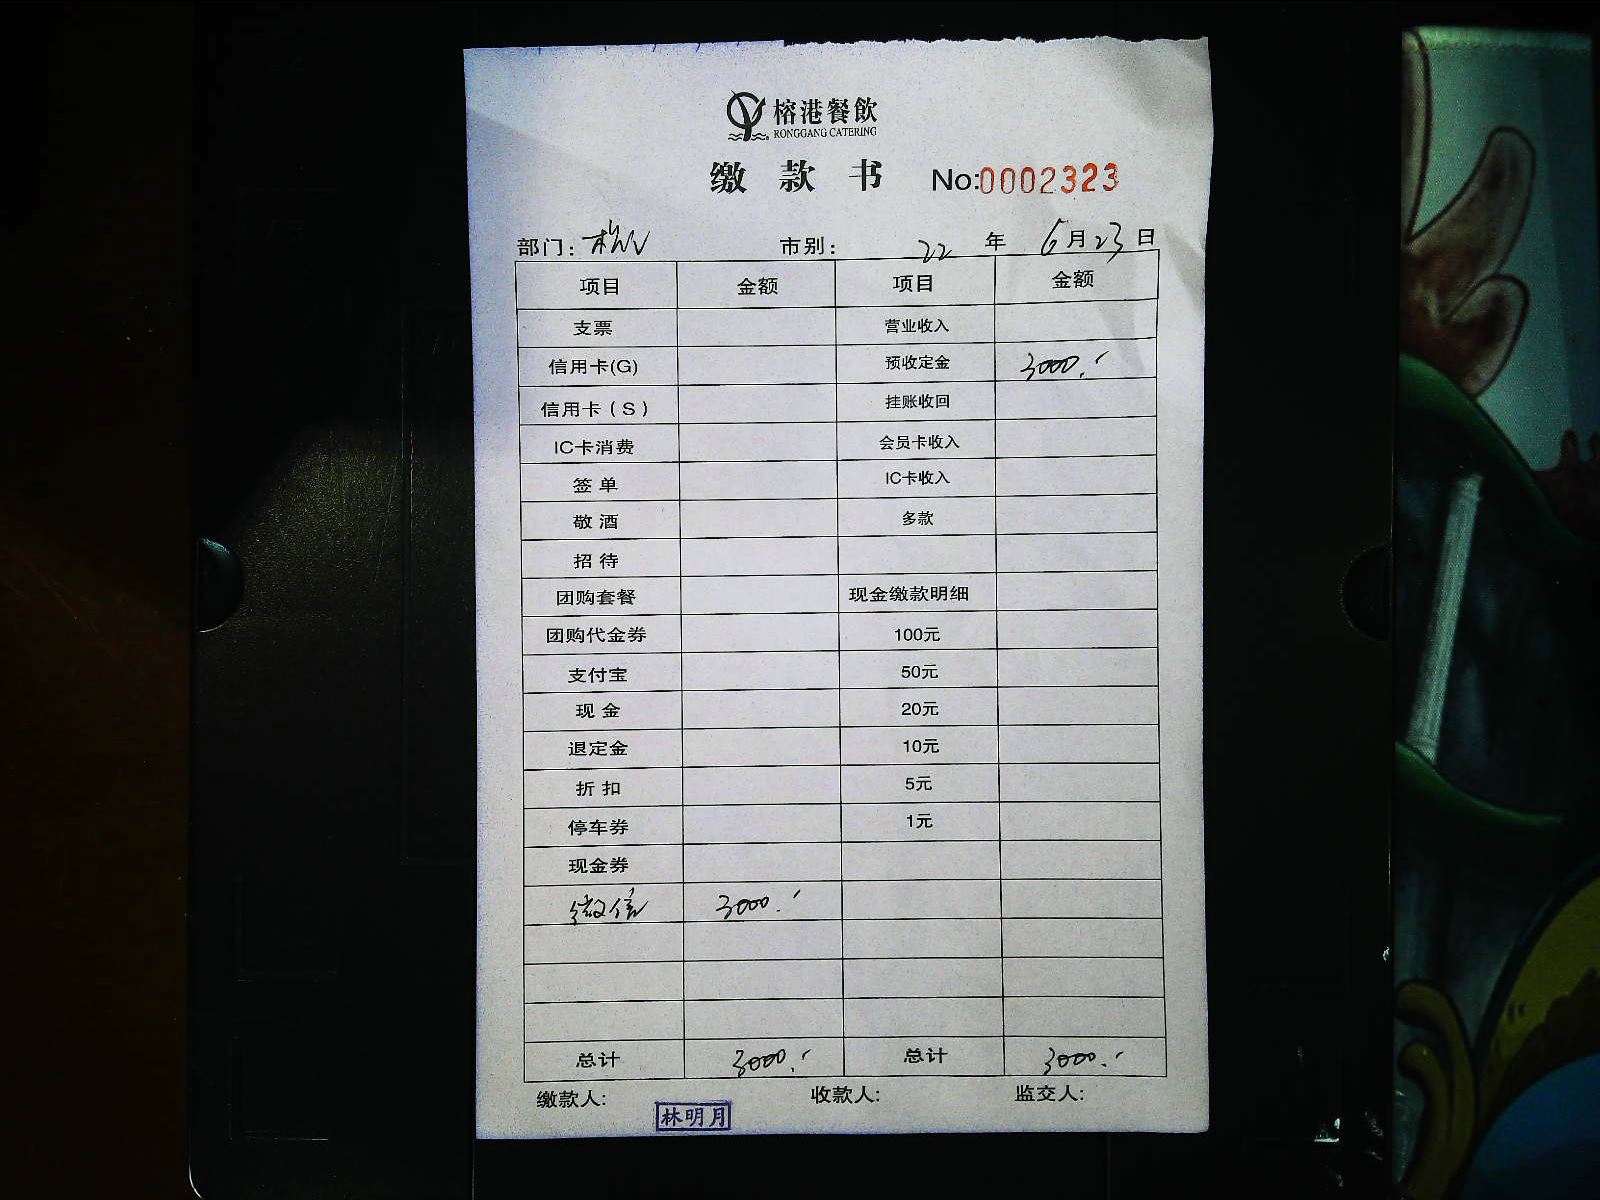 榕港餐飲
RONGGANG CATERING
缴款书 No:0002323
部门: 市别: 22 年 6 月 23 日
项目 金额 项目 金额
支票 营业收入
信用卡(G) 预收定金 3000.-
信用卡(S) 挂账收回
IC卡消费 会员卡收入
签单 IC卡收入
敬酒 多款
招待
团购套餐 现金缴款明细
团购代金券 100元
支付宝 50元
现金 20元
退定金 10元
折扣 5元
停车券 1元
现金券
微信 3000.-
总计 3000.- 总计 3000.-
缴款人: 收款人: 监交人:
林明月